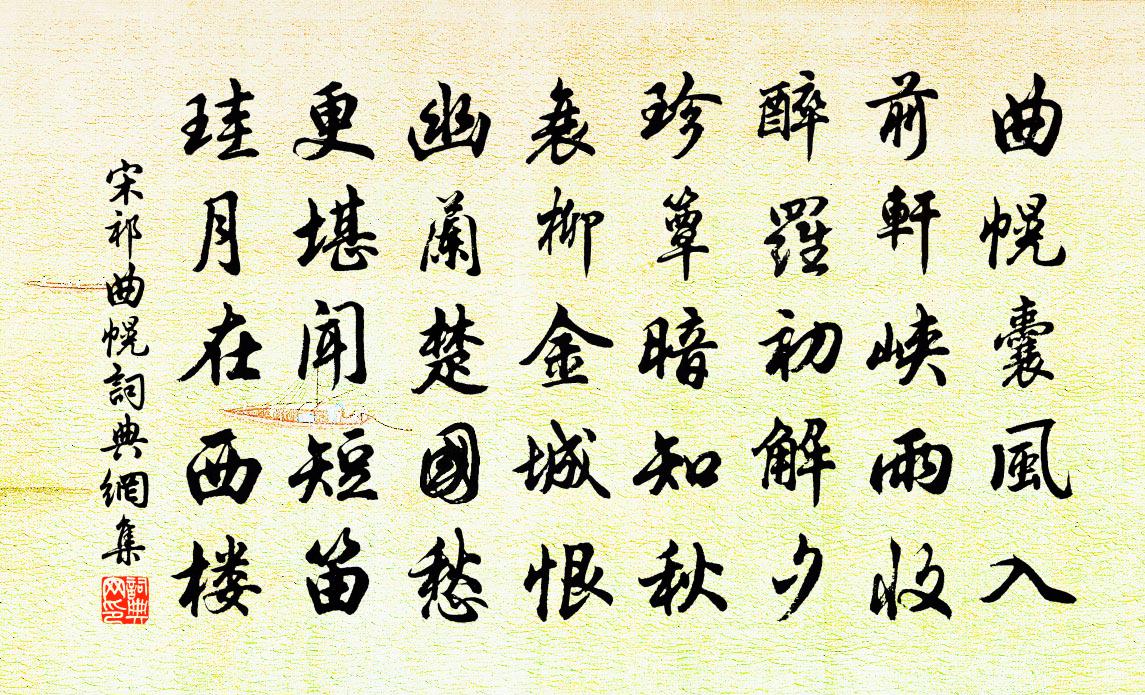 曲幌囊風入
前軒峽雨收
醉羅初解夕
珍簟暗知秋
衰柳金城恨
幽蘭楚國愁
更堪聞短笛
珪月在西楼
宋祁曲幌詞典網集
詞典网印